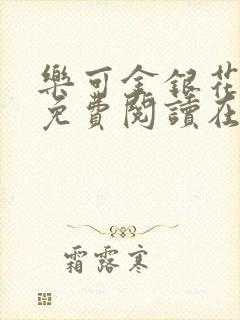 樂可金銀花
免費閱讀在
霜露寒